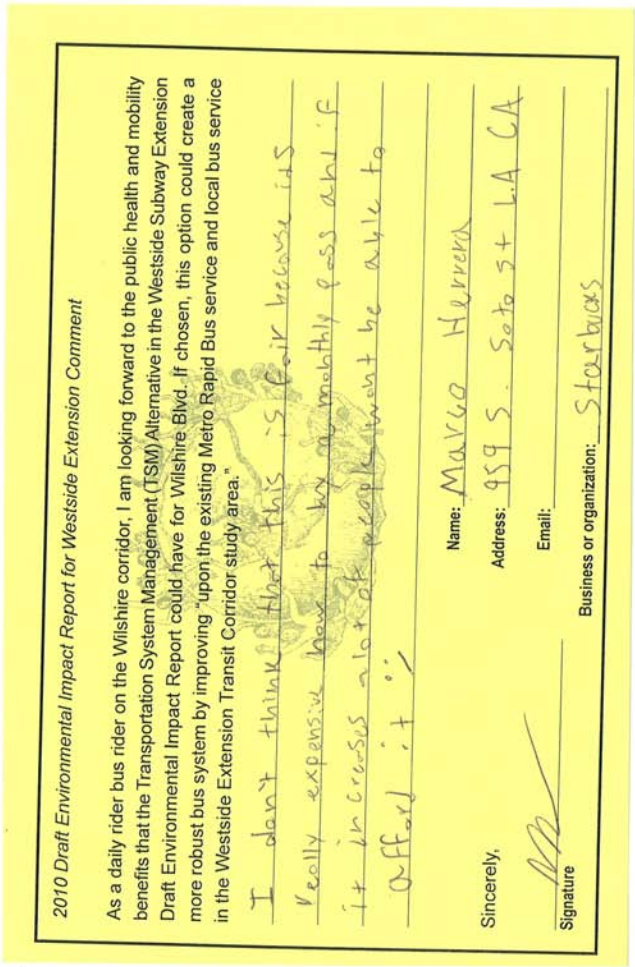 2010 Draft Environmental Impact Report for Westside Extension Comment
As a daily rider bus rider on the Wilshire corridor, I am looking forward to the public health and mobility
benefits that the Transportation System Management (TSM) Alternative in the Westside Subway Extension
Draft Environmental Impact Report could have for Wilshire Blvd. If chosen, this option could create a
more robust bus system by improving "upon the existing Metro Rapid Bus service and local bus service
in the Westside Extension Transit Corridor study area."
I don't think that this is fair because its
really expensive how to by a monthly pass and if
it increases alot of people wont be able to
afford it :/
Name: Marco Herrera
Address: 959 S. Soto st L.A CA
Email:
Sincerely,
Signature
Business or organization: Starbucks